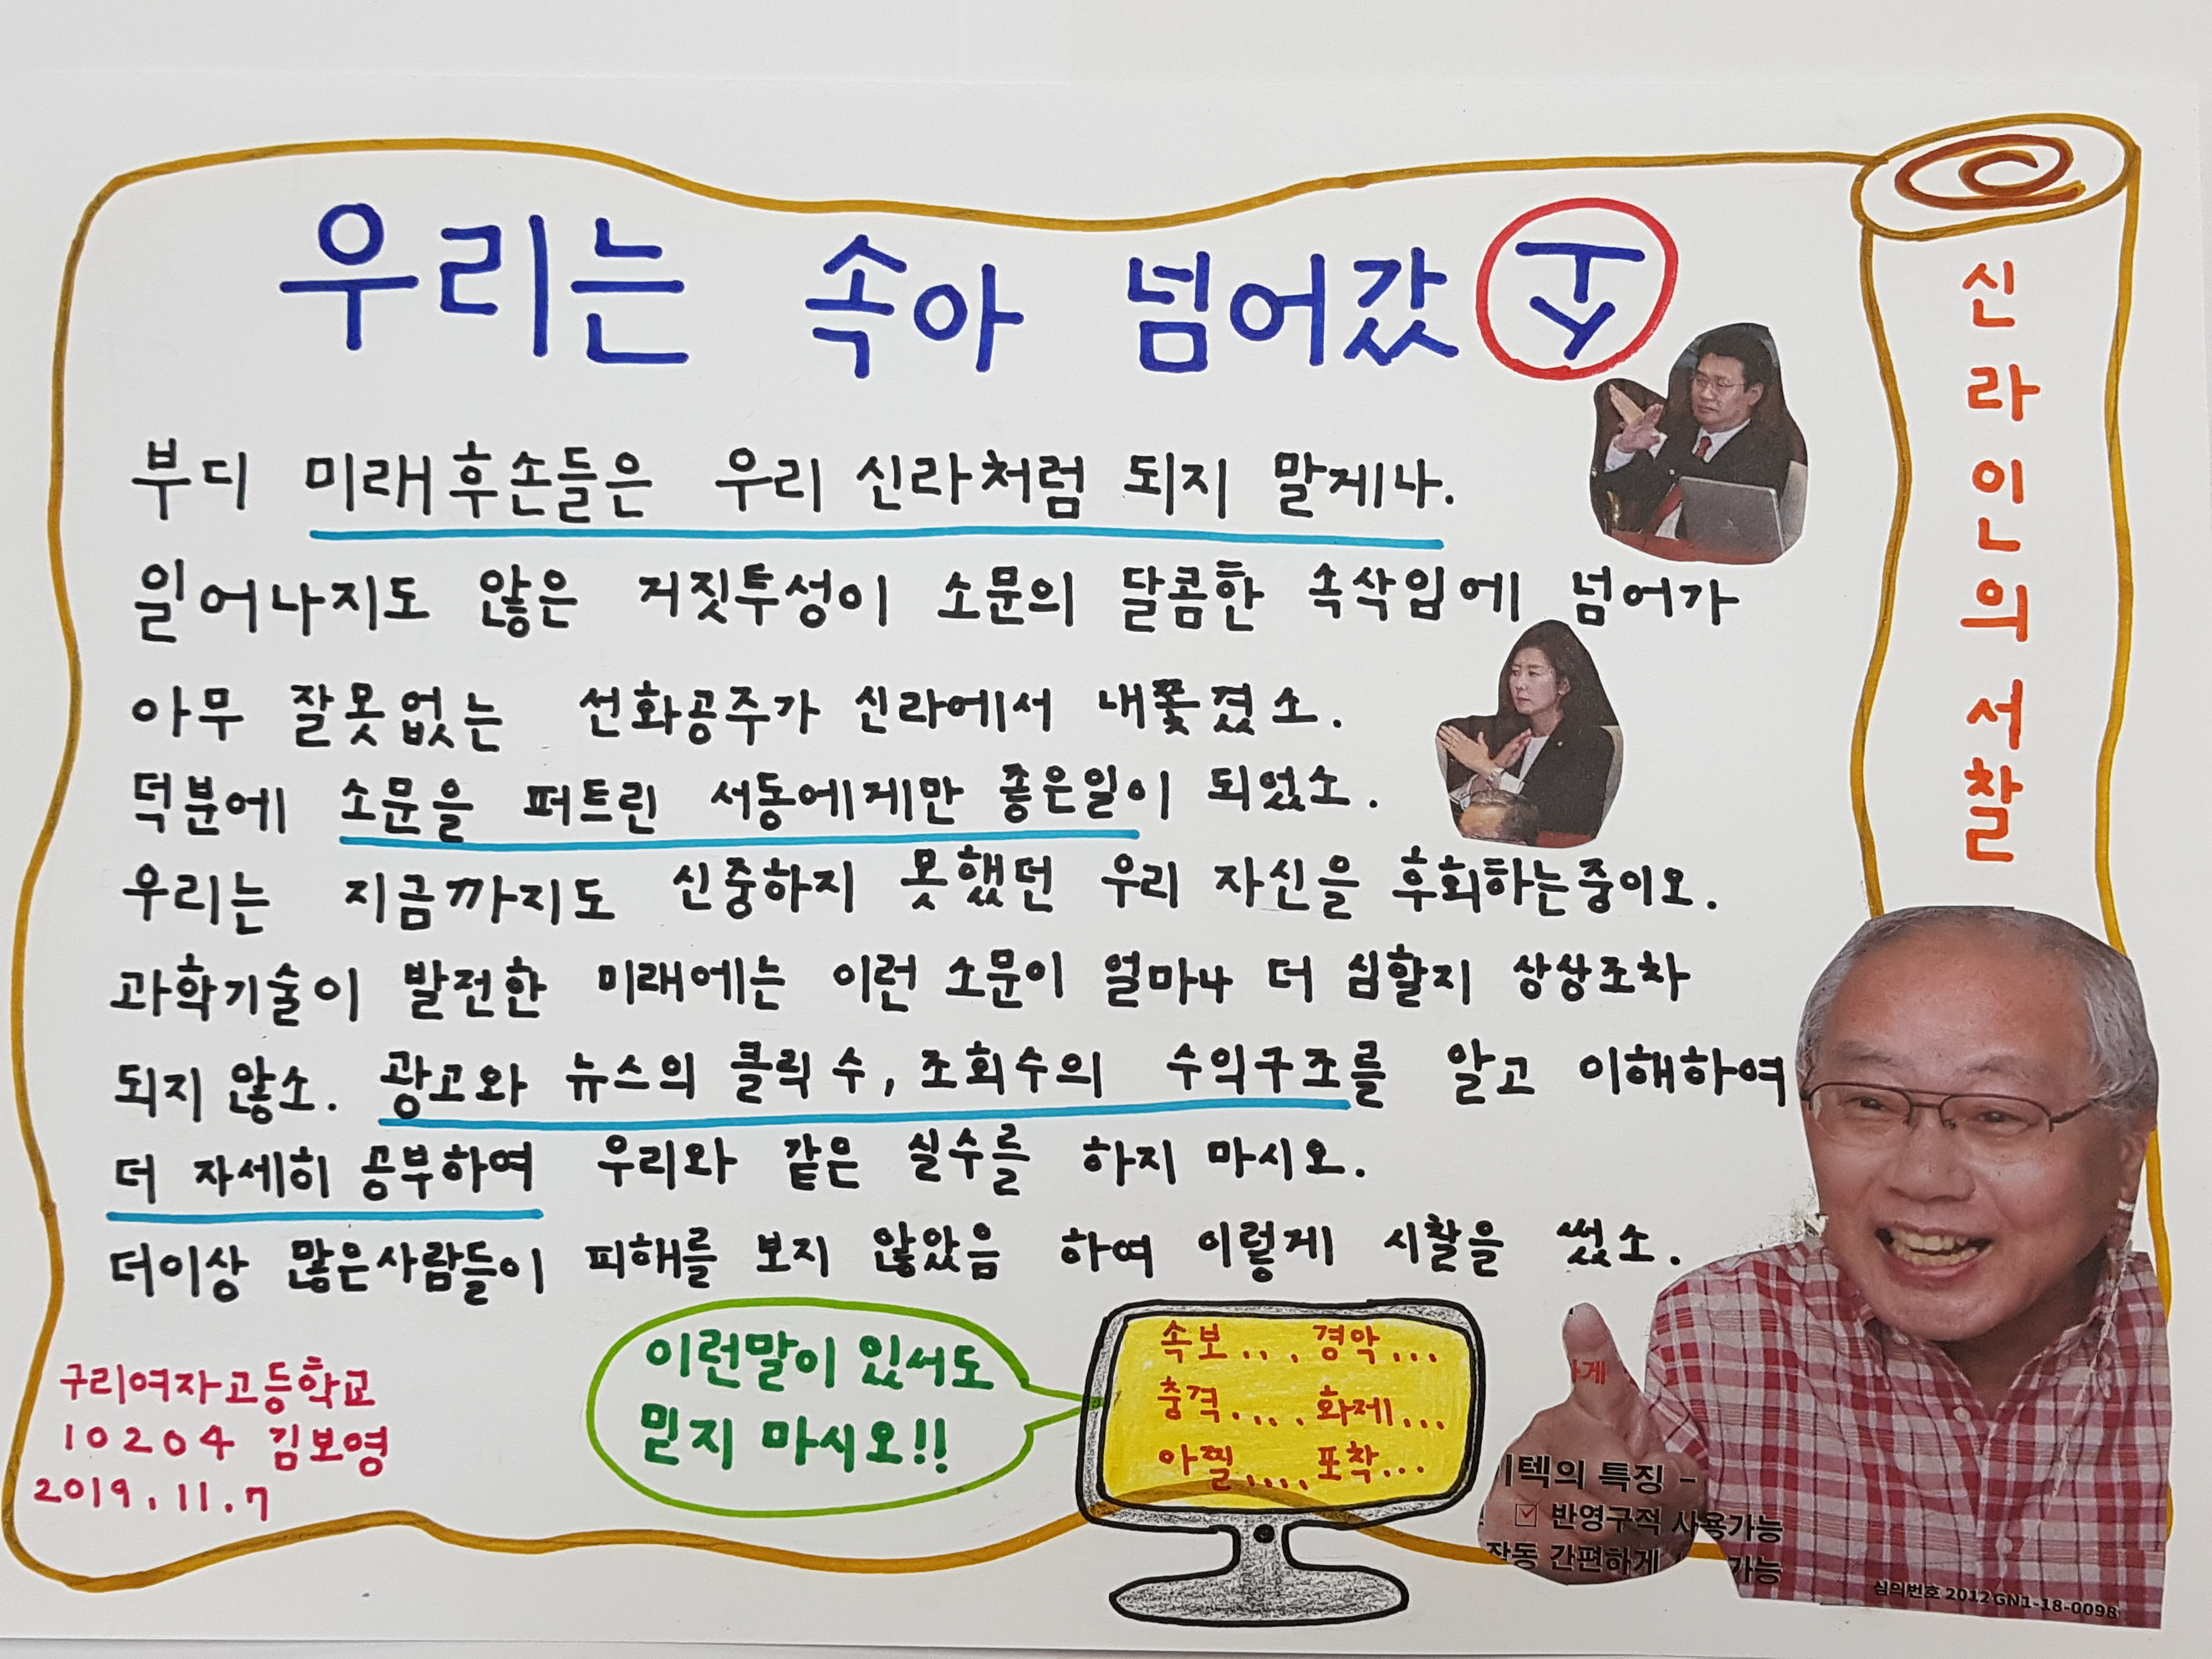 우리는 속아 넘어갔 TY
신라인의 서찰
부디 미래후손들은 우리 신라처럼 되지 말게나.
일어나지도 않은 거짓투성이 소문의 달콤한 속삭임에 넘어가
아무 잘못없는 선화공주가 신라에서 내쫓겼소.
덕분에 소문을 퍼트린 서동에게만 좋은일이 되었소.
우리는 지금까지도 신중하지 못했던 우리 자신을 후회하는중이오.
과학기술이 발전한 미래에는 이런 소문이 얼마나 더 심할지 상상조차
되지 않소. 광고와 뉴스의 클릭 수, 조회수의 수익구조를 알고 이해하여
더 자세히 공부하여 우리와 같은 실수를 하지 마시오.
더이상 많은사람들이 피해를 보지 않았음 하여 이렇게 시찰을 썼소.
구리여자고등학교
10204 김보영
2019.11.7
이런말이 있서도
믿지 마시오!!
속보.... 경악...
충격.... 화제...
아찔.... 포착...
게
텍의 특징 -
반영구적 사용가능
작동 간편하게 가능
심의번호 2012 GN1-18-0098